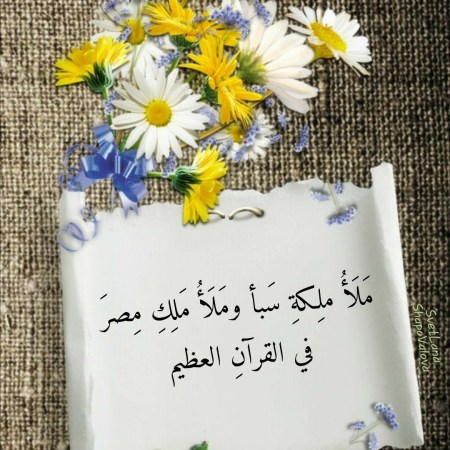 مَلَأُ ملِكةِ سَبأ ومَلَأُ مَلِكِ مِصرَ
في القرآنِ العظيم
Svetlana
Shapovalova